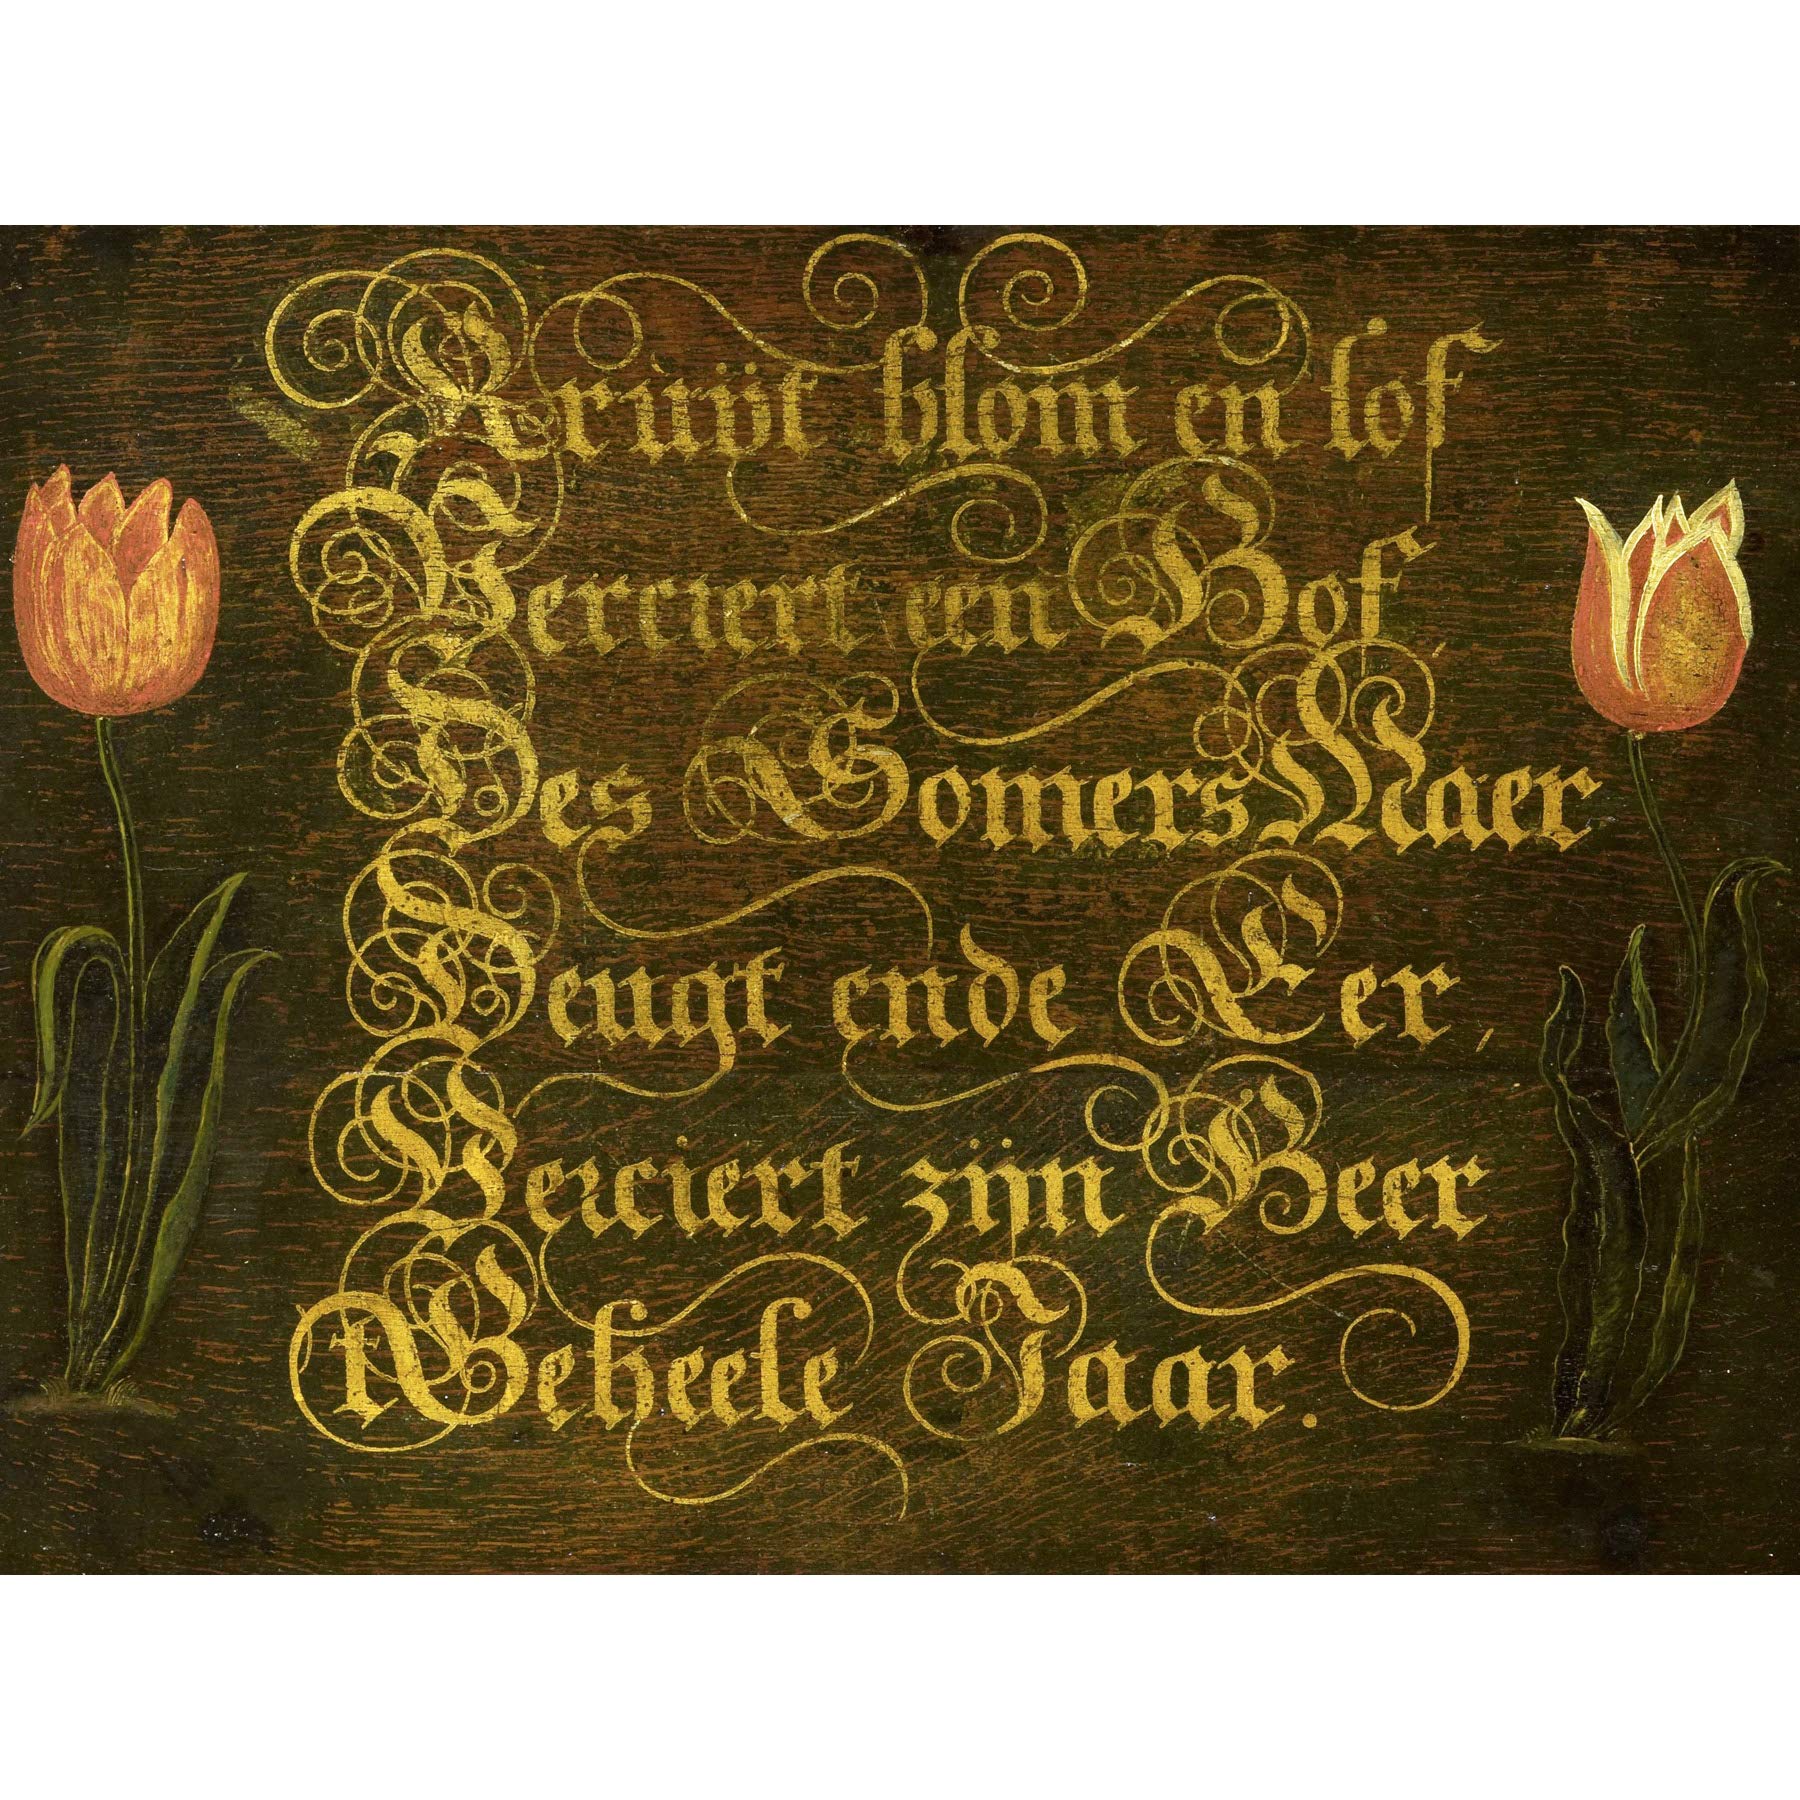 Kruÿt blom en lof
Verciert een Hof,
Des Somers Maer
Deugt ende Eer,
Verciert zijn Heer
t Geheele Jaar.